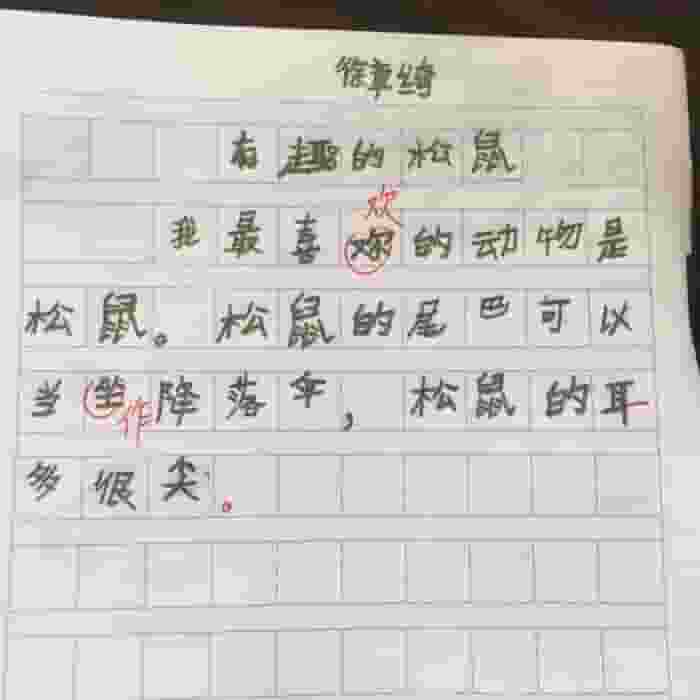 有趣的松鼠
欢
我最喜欢的动物是
松鼠。松鼠的尾巴可以
当坐降落伞，松鼠的耳
作
多很尖。